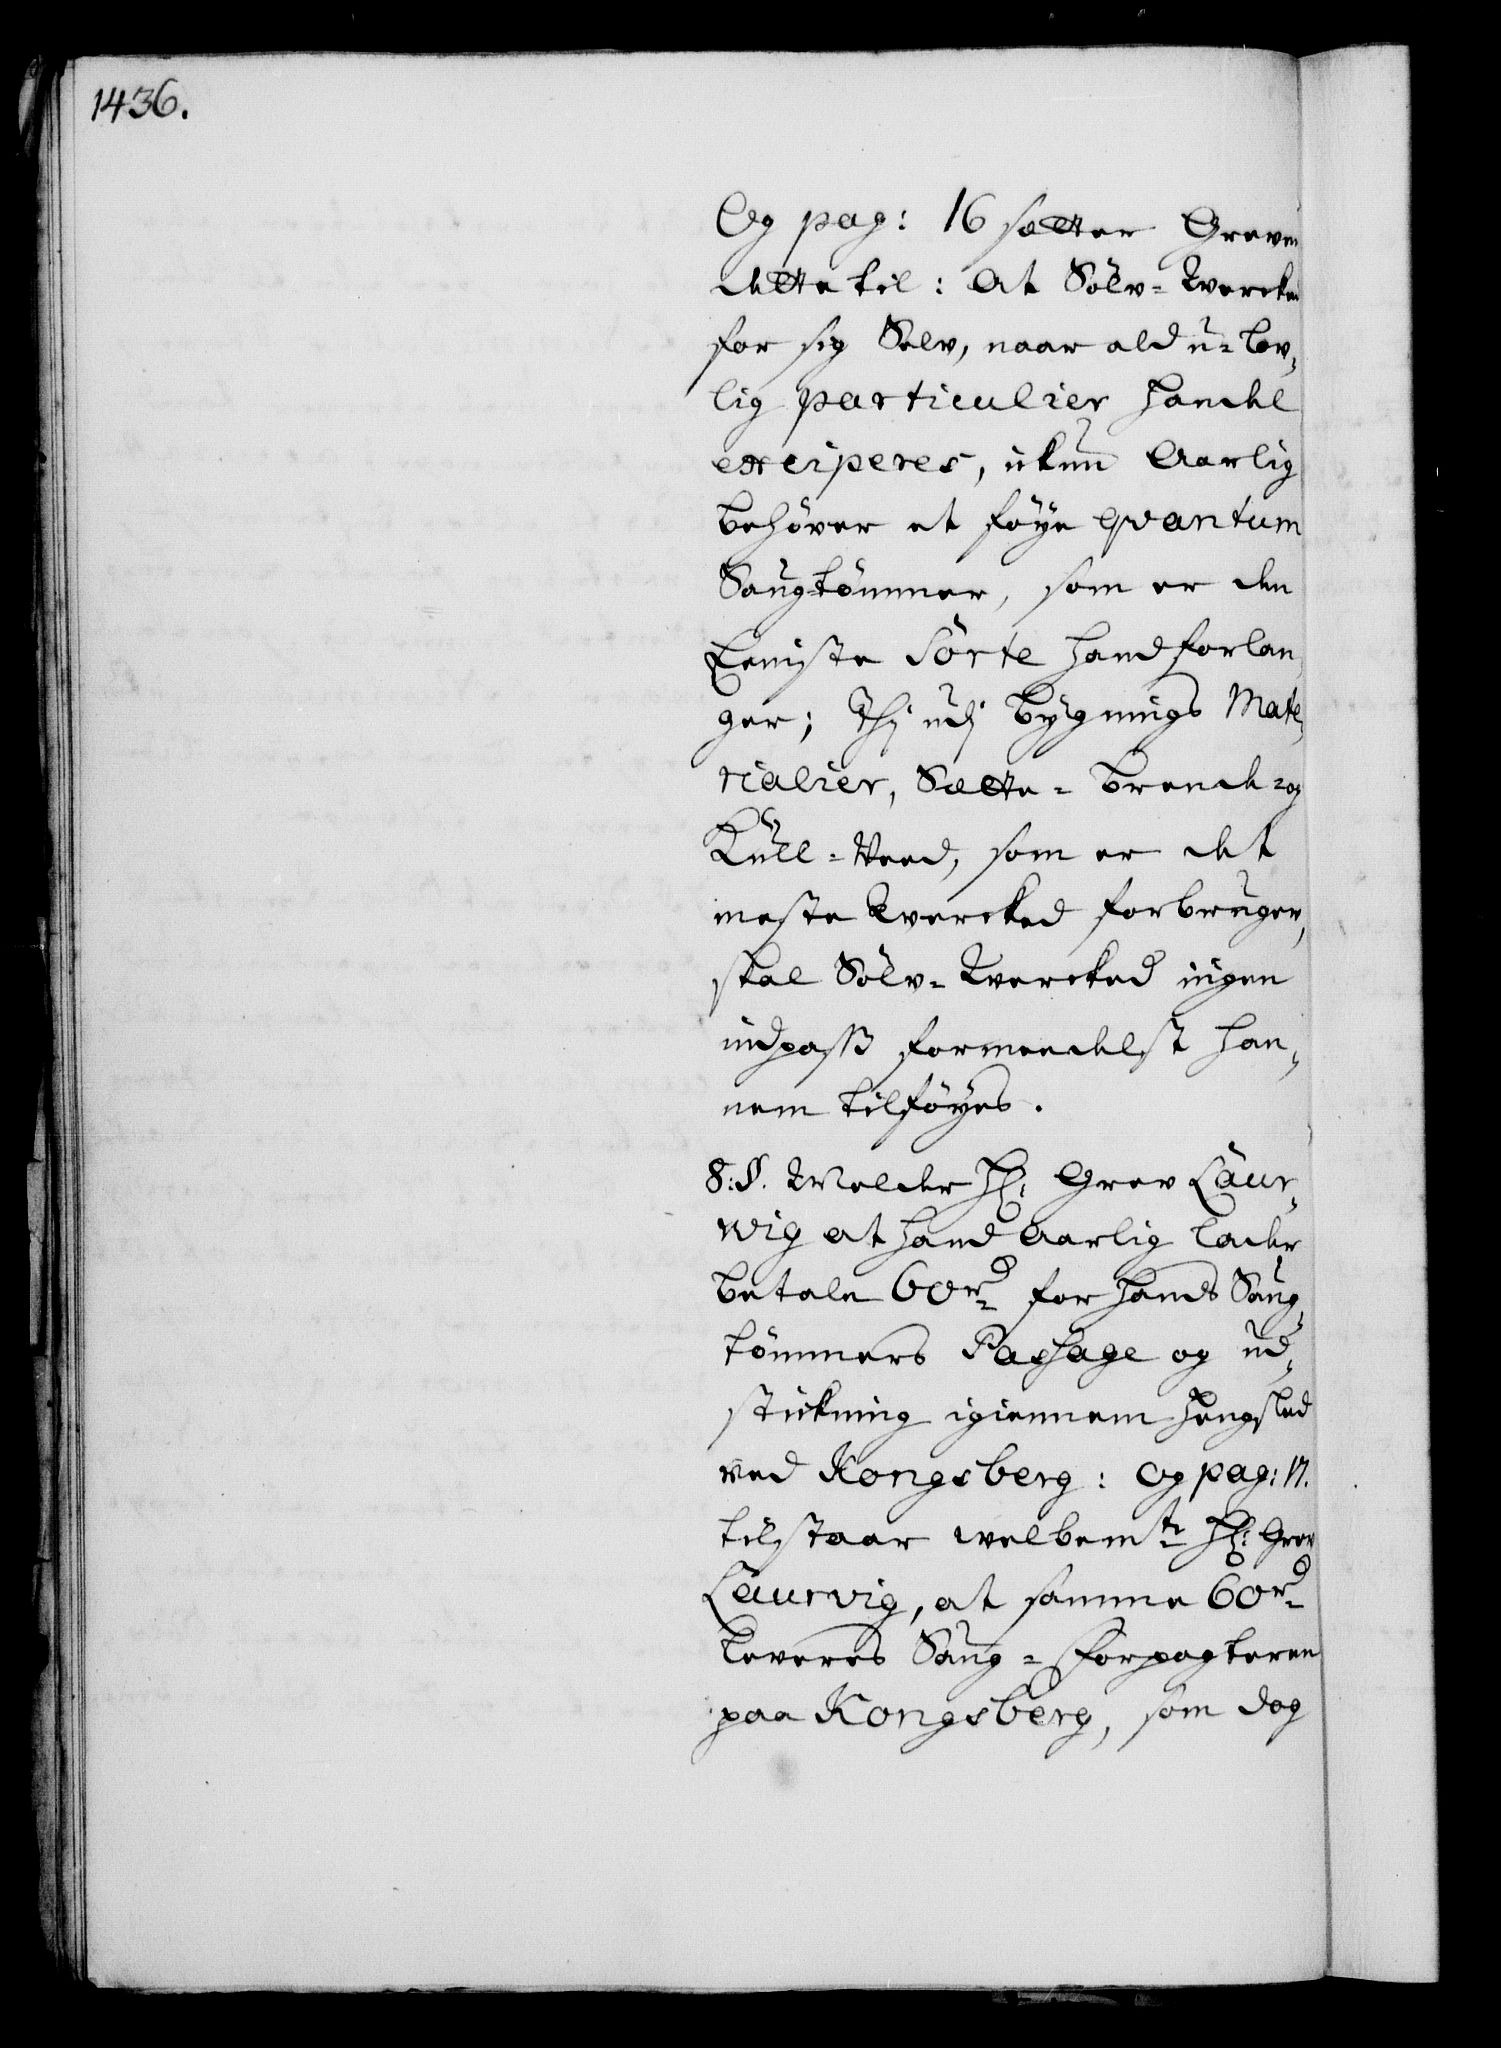 1436.
Og pag: 16 sætter Greven
dette til: At Sölv-Wercket
for sig Selv, naar ald u-lov,
lig particulier Handel
exciperes, ikun Aarlig
behöver et föye qvantum
Saugtömmer, som er den
Eeniste Sorte hand forlan,
ger; Thj udj bygnings Mate,
rialier, Sætte- Brende- og
Kull-Veed, som er det
meste Wercked forbruger,
skal Sölv-Wercked ingen
indpass formeedelst han,
nem tilföyes.
8:§. Melder H: Grev Laur,
wig at hand Aarlig lader
betale 60rd for hands Saug,
tömmers Passage og ud,
stikning igiennem Hengsled
ved Kongsberg: og pag: 17.
tilstaar welbemte H: Grev
Laurvig, at samme 60rd
leveres Saug-Forpagteren
paa Kongsberg, som dog